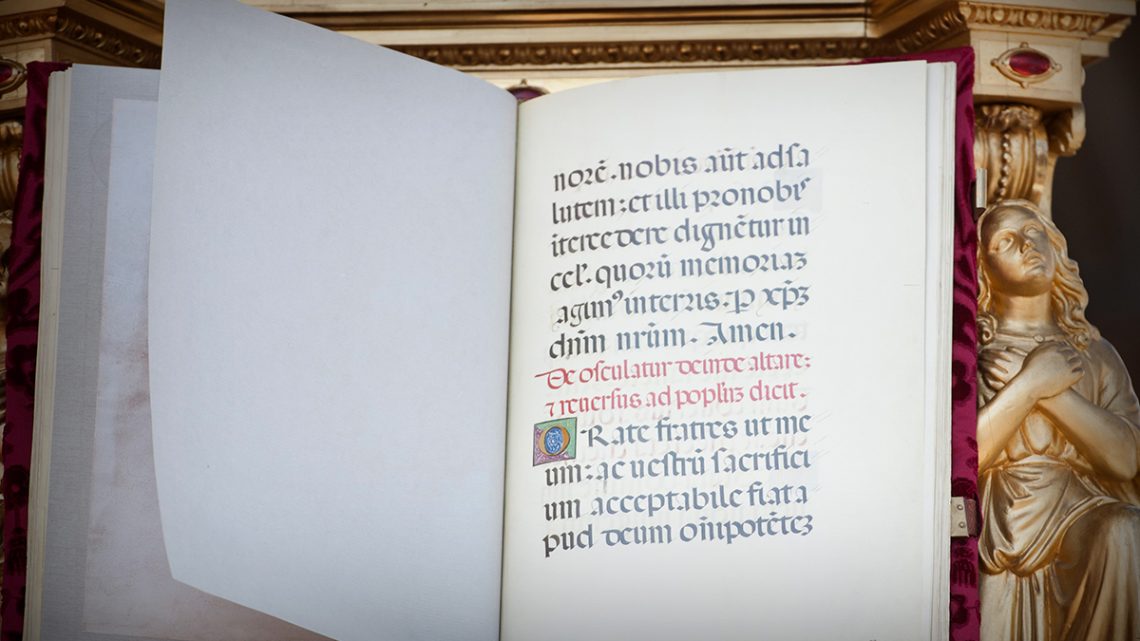 norē. nobis aūt ad sa
lutem; et illi pro nobis
ītercedere dignētur in
cel'. quorū memoriaꝫ
agimꝰ in terris. P xp̄ꝫ
dnm̄ nrūm. Amen.
De osculatur deinde altare:
⁊ reuersus ad populuꝫ dicit.
ORate fratres ut me
um: ac uestrū sacrifici
um acceptabile fiat a
pud deum om̄ipotēteꝫ